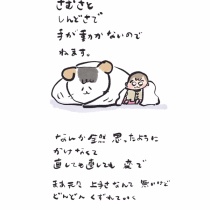 さむさと
しんどさで
手が動かないので
ねます。
なんか全然 思ったように
かけなくて
直しても直しても 変で
まあ元々 上手さなんて 無いけど
どんどん くずれていく